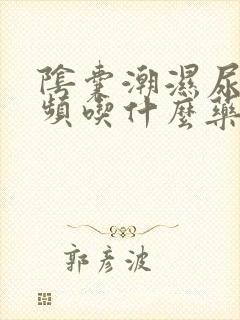 陰囊潮濕尿
頻喫什麼藥
郭彥波